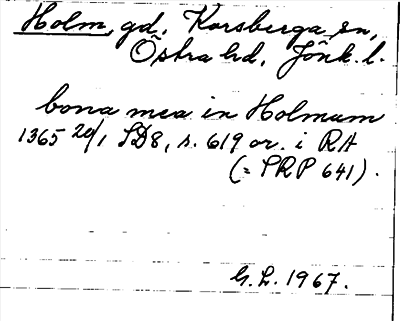 Holm, gd, Korsberga sn,
Östra hd, Jönk. l.
bona mea in Holmum
1365 20/1 SD8, s. 619 or. i RA
(= SRP 641).
G. L. 1967.